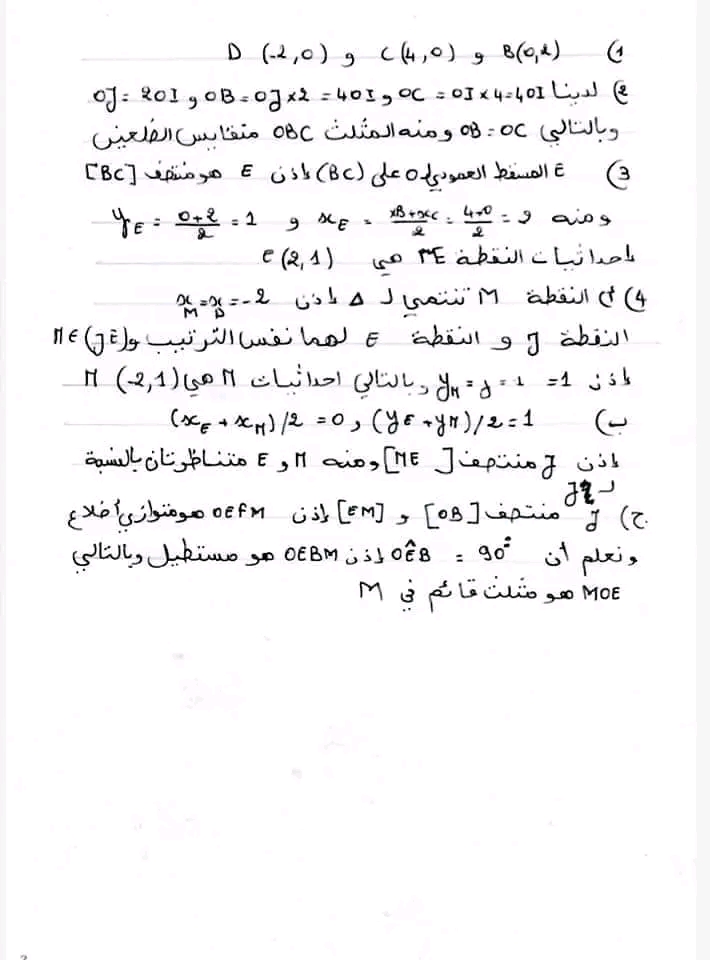 1) B(0,2) و C(4,0) و D(-2,0)
2) لدينا OJ = 2OI و OB = OJ×2 = 4OI و OC = OI×4 = 4OI
وبالتالي OB = OC ومنه المثلث OBC متقايس الضلعين
3) E المسقط العمودي لـ O على (BC) إذن E هو منتصف [BC]
ومنه x_E = (xB+xC)/2 = (4+0)/2 = و y_E = (0+2)/2 = 1
إحداثيات النقطة E هي E(2,1)
4) أ) النقطة M تنتمي لـ Δ إذن x_M = x_D = -2
النقطة J و النقطة E لهما نفس الترتيب و M∈(JE)
إذن y_M = y = 1 = 1 وبالتالي احداثيات M هي M(-2,1)
ب) (y_E + y_M)/2 = 1 و (x_E + x_M)/2 = 0
إذن J منتصف [ME] ومنه M و E متناظرتان بالنسبة
لـ J
ج) J منتصف [OB] و [EM] إذن OEFM هو متوازي أضلاع
ونعلم أن OÊB = 90° إذن OEBM هو مستطيل وبالتالي
MOE هو مثلث قائم في M